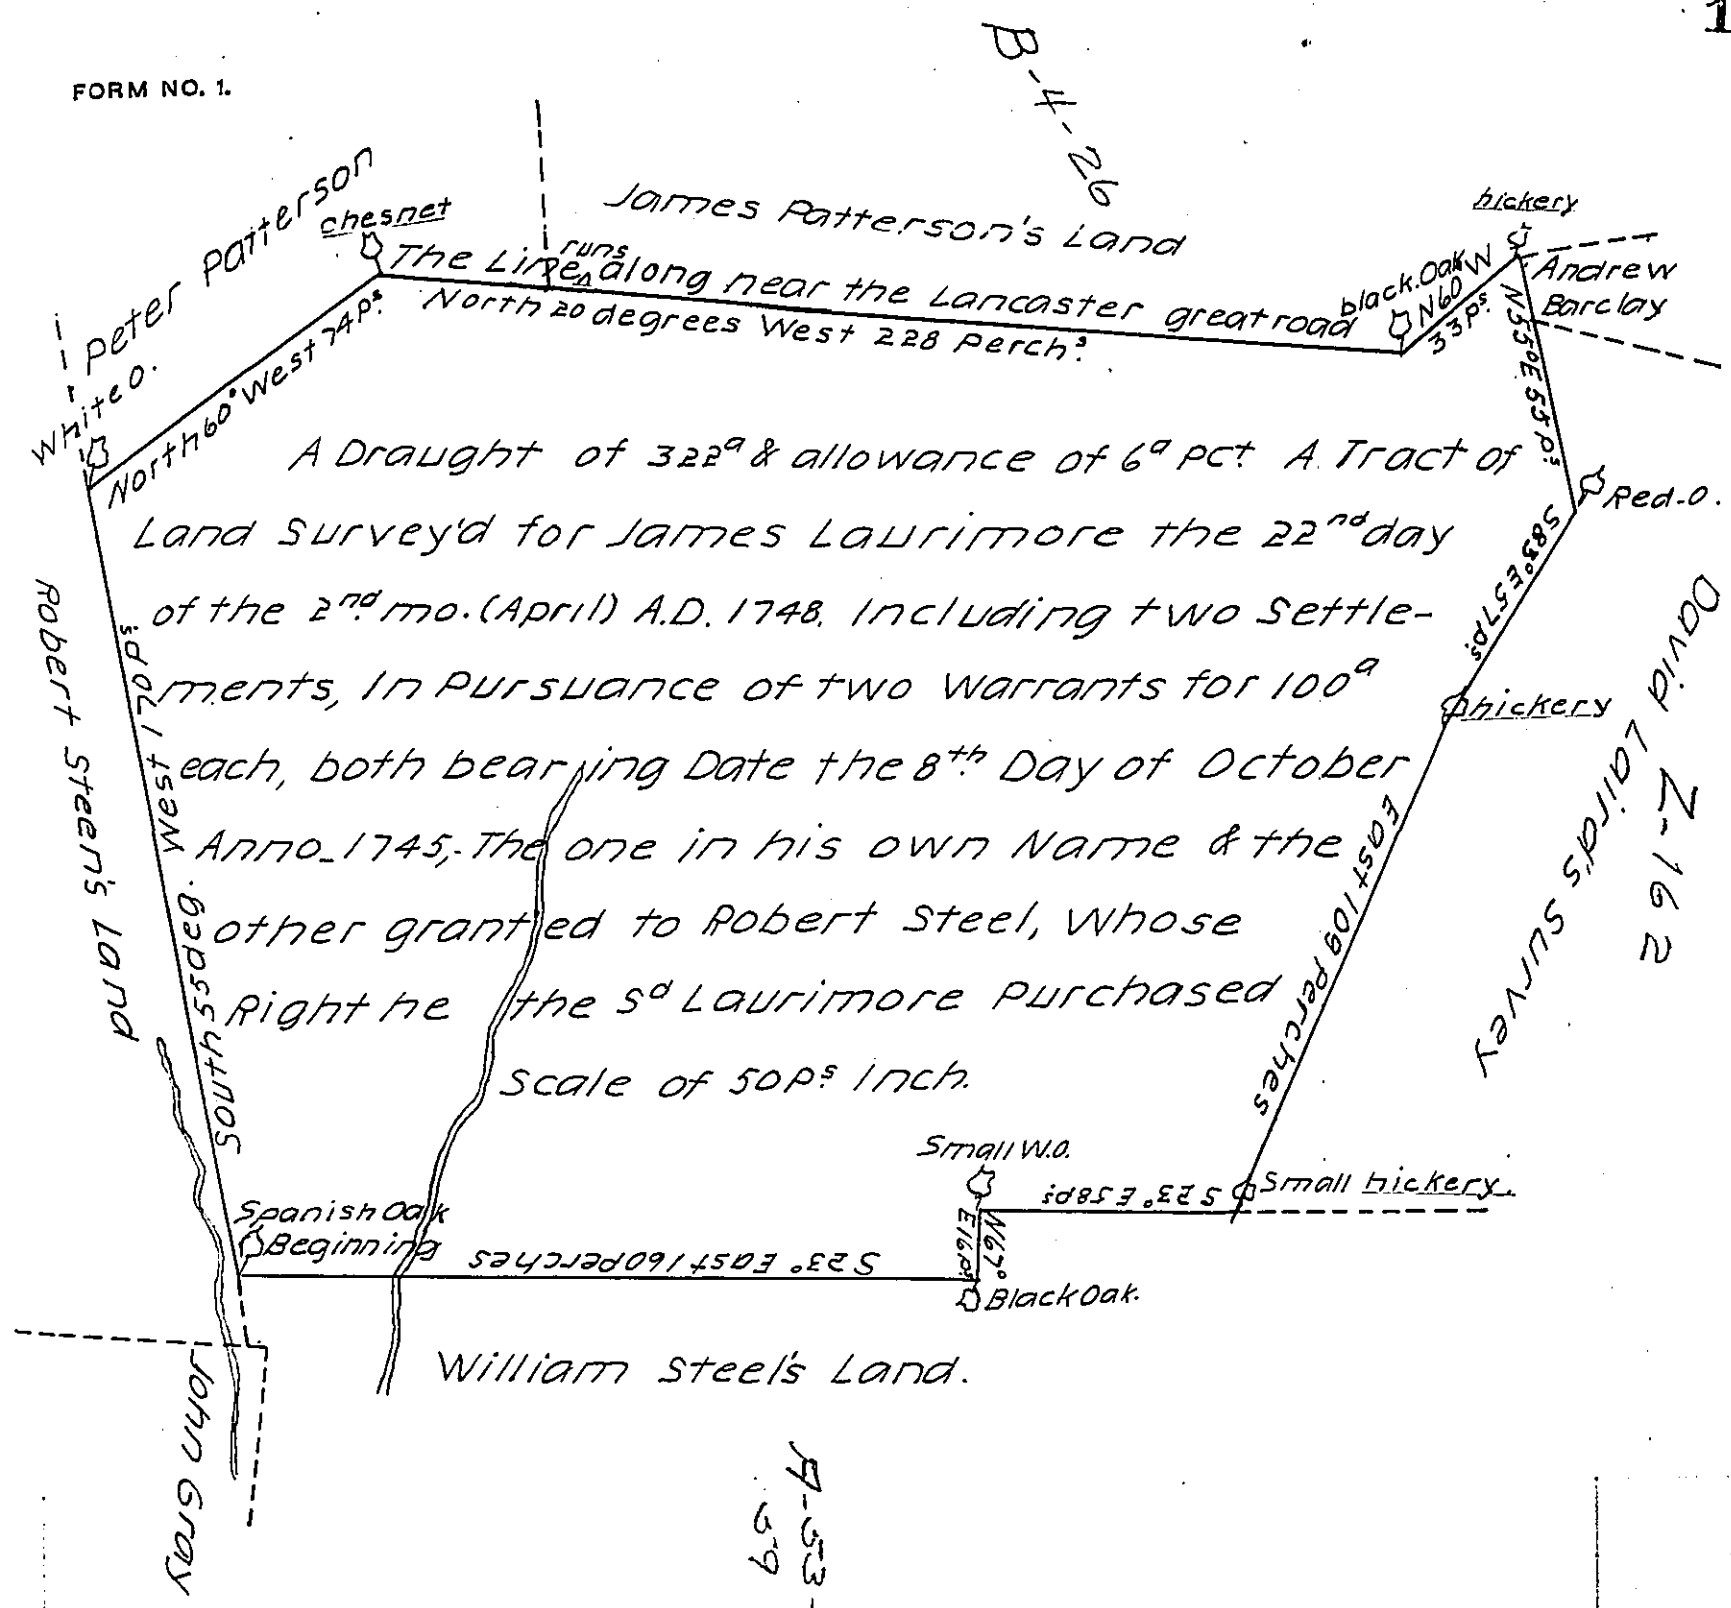 1
FORM NO. 1.
B-4-26
Peter Patterson
chesnet
James Patterson's Land
hickery
The Line runs along near the Lancaster great road
North 20 degrees West 228 Perchs.
black.Oak
N60 W
33 Ps.
Andrew
Barclay
N55°E 55 Ps.
White O.
North 60° West 74 Ps.
Red-O.
S83°E 57 Ps.
hickery
David Laird's Survey
Z-162
East 109 Perches
A Draught of 322a & allowance of 6a Pct. A Tract of
Land Survey'd for James Laurimore the 22nd day
of the 2nd. mo. (April) A.D. 1748. Including two Settle-
ments, In Pursuance of two Warrants for 100a
each, both bearing Date the 8th. Day of October
Anno_1745,-The one in his own Name & the
other granted to Robert Steel, Whose
Right he the Sd Laurimore Purchased
Scale of 50 Ps. inch.
Robert Steen's Land
South 55 deg. West 170 Ps.
Small W.O.
S 23° E 58 Ps.
Small hickery.
Spanish Oak
Beginning
S 23° East 160 perches
N67°
E 16 Ps.
Black Oak.
William Steel's Land.
John Gray
A-53-
59